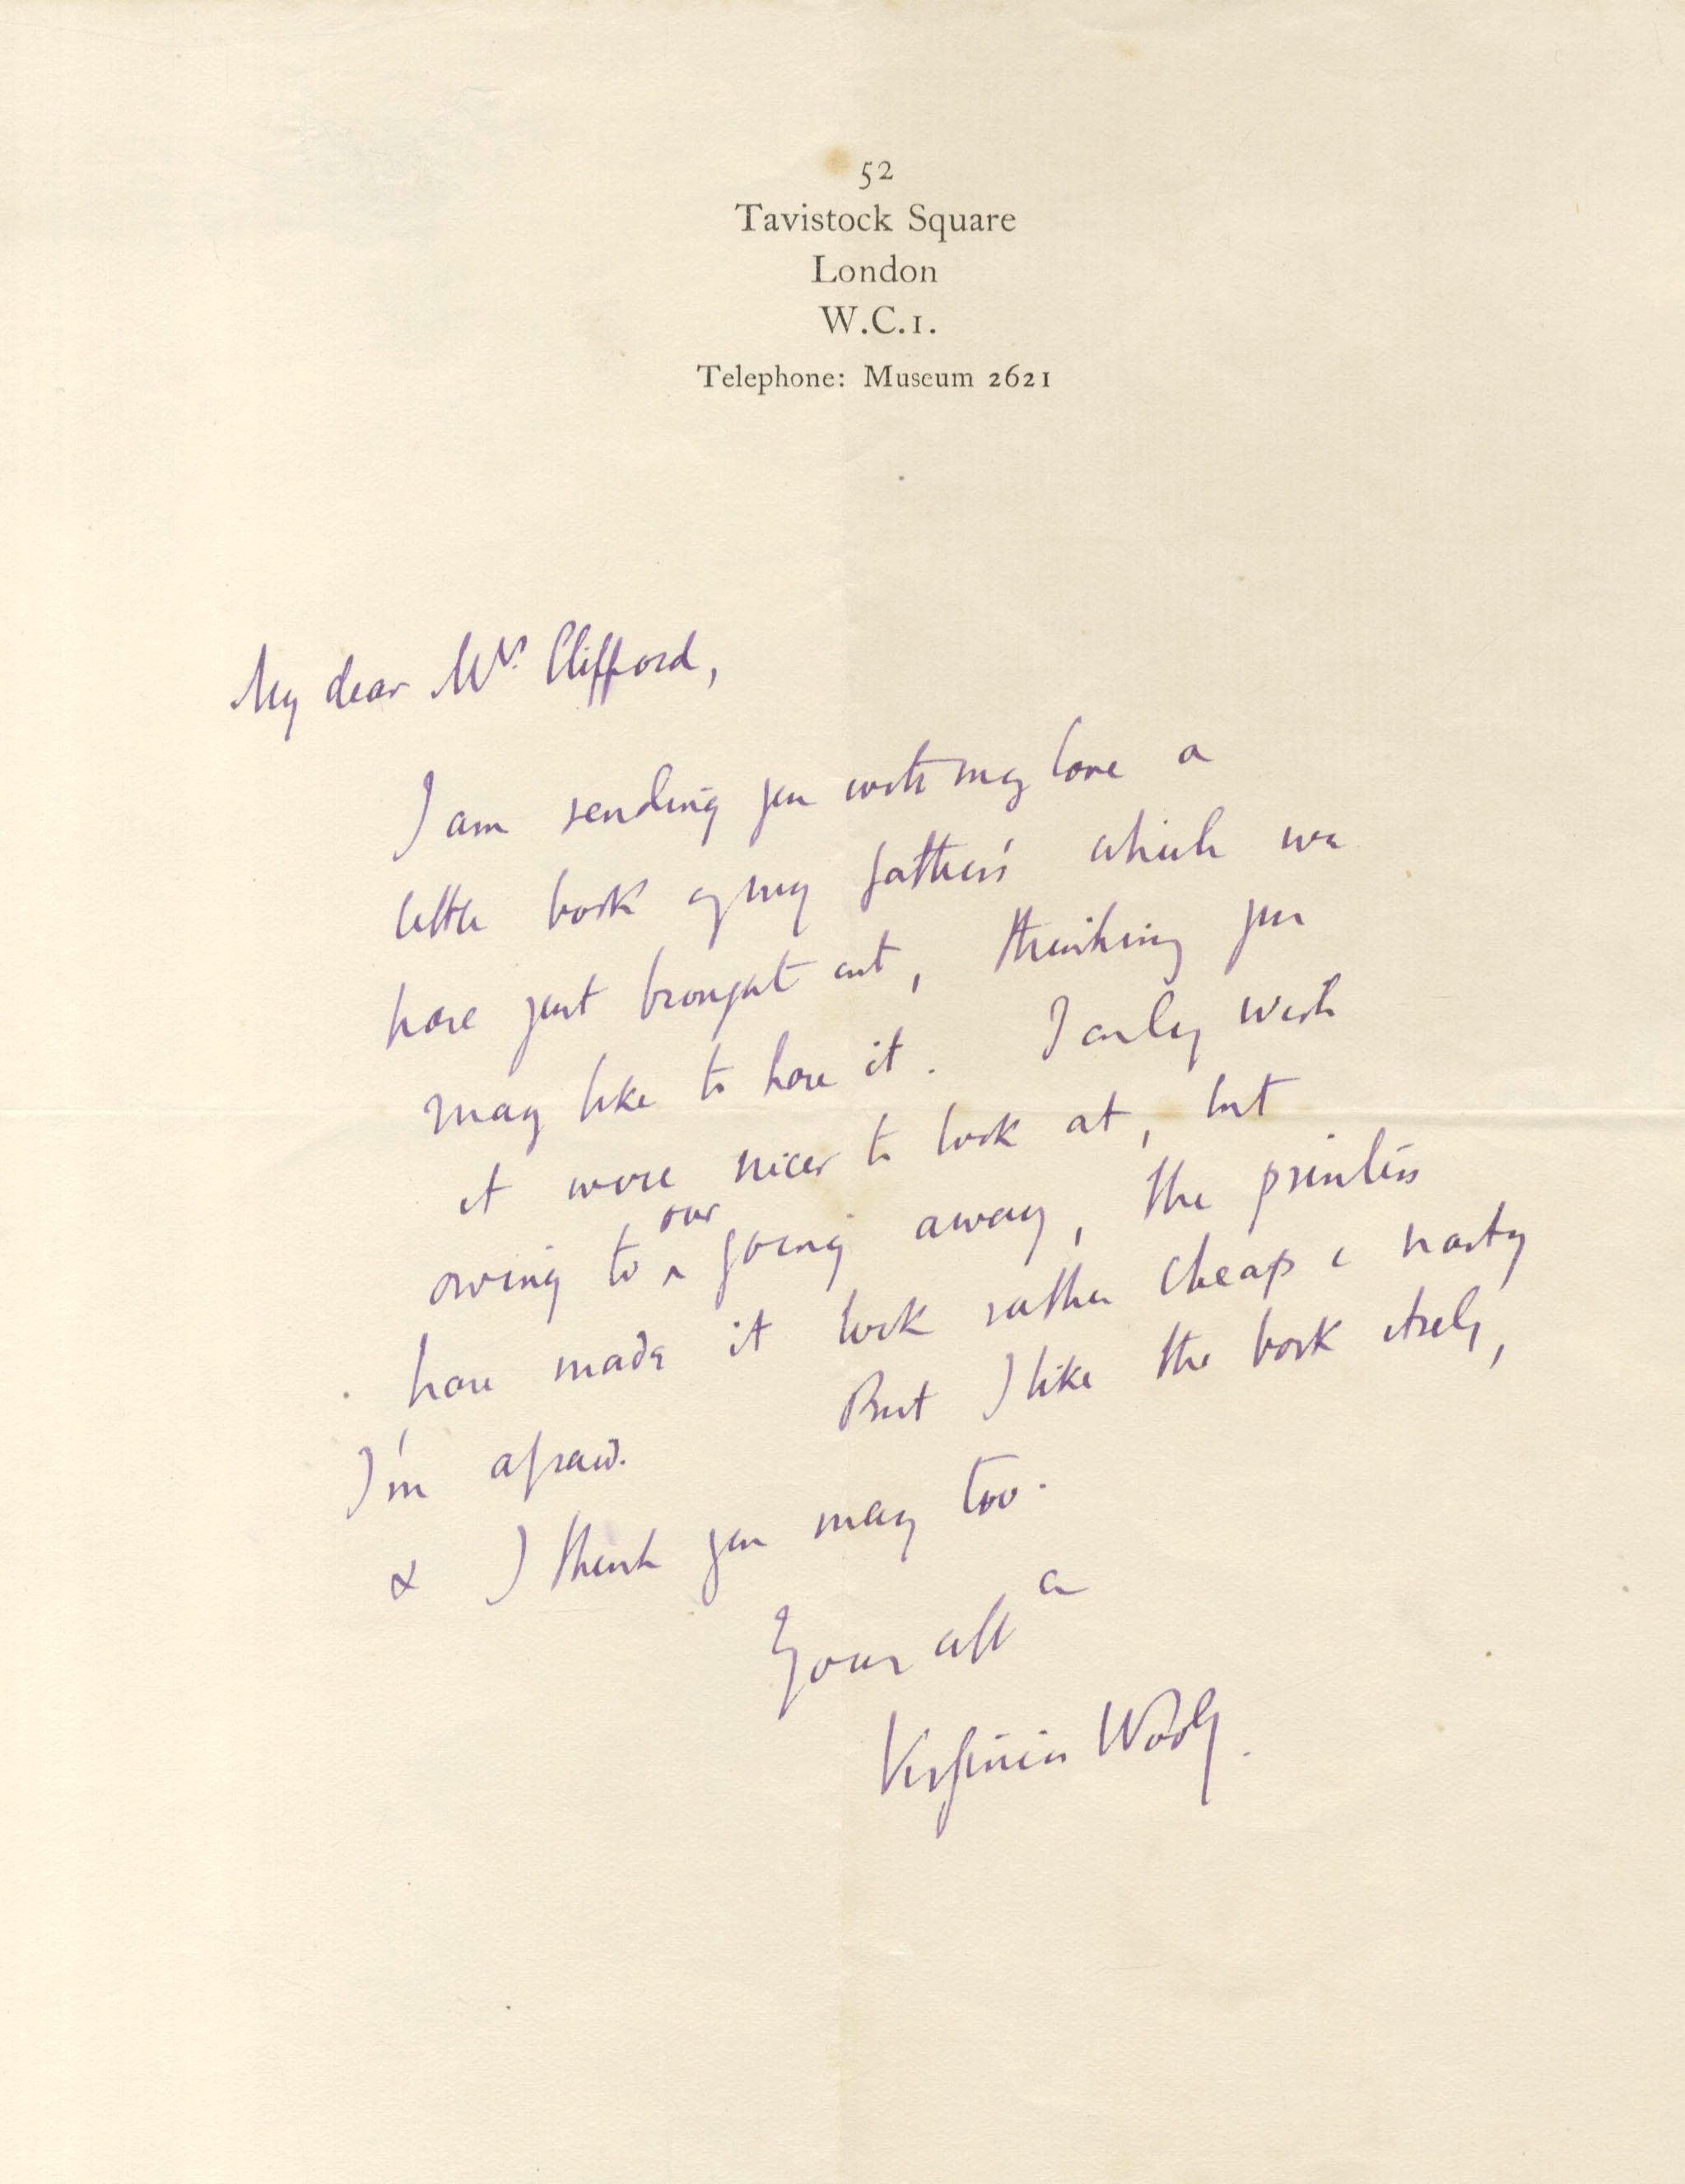 52
Tavistock Square
London
W.C.1.
Telephone: Museum 2621
My dear Mrs. Clifford,
I am sending you with my love a
little book of my father's which we
have just brought out, thinking you
may like to have it. I only wish
it were nicer to look at, but
owing to our going away, the printers
have made it look rather cheap & nasty
I'm afraid. But I like the book itself,
& I think you may too.
Your aff ate
Virginia Woolf.